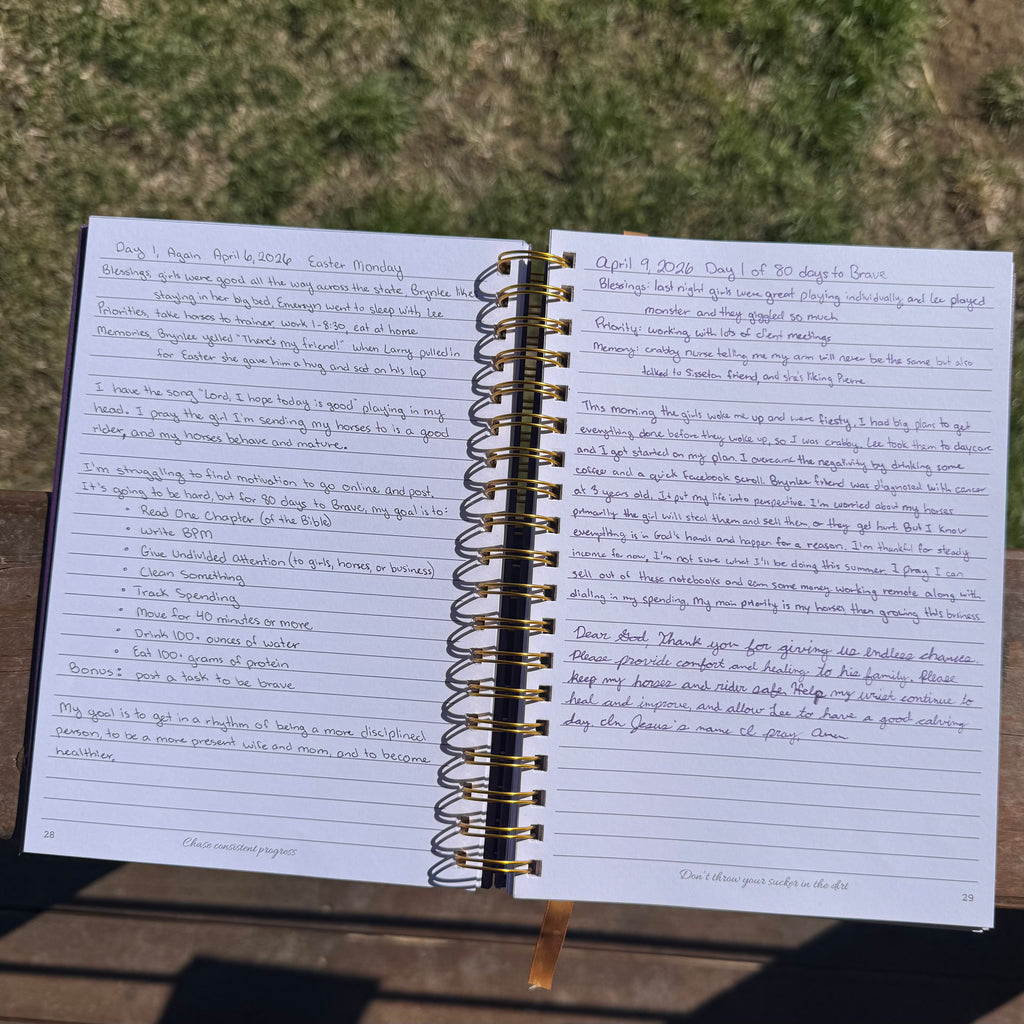 Day 1, Again April 6, 2026 Easter Monday
Blessings, girls were good all the way across the state, Brynlee like
staying in her big bed. Emersyn went to sleep with Lee
Priorities, take horses to trainer, work 1-8:30, eat at home
Memories, Brynlee yelled "There's my friend!" when Larry pulled in
for Easter she gave him a hug and sat on his lap
I have the song "Lord, I hope today is good" playing in my
head. I pray the girl I'm sending my horses to is a good
rider, and my horses behave and mature.
I'm struggling to find motivation to go online and post.
It's going to be hard, but for 80 days to Brave, my goal is to:
• Read One Chapter (of the Bible)
• Write BPM
• Give Undivided Attention (to girls, horses, or business)
• Clean Something
• Track Spending
• Move for 40 minutes or more
• Drink 100+ ounces of water
• Eat 100+ grams of protein
Bonus: post a task to be brave
My goal is to get in a rhythm of being a more disciplined
person, to be a more present wife and mom, and to become
healthier.
28
Chase consistent progress
April 9, 2026 Day 1 of 80 days to Brave
Blessings: last night girls were great playing individually, and Lee played
monster and they giggled so much
Priority: working, with lots of client meetings
Memory: crabby nurse telling me my arm will never be the same but also
talked to Sisseton friend, and she's liking Pierre
This morning the girls woke me up and were fiesty. I had big plans to get
everything done before they woke up, so I was crabby. Lee took them to daycare
and I got started on my plan. I overcame the negativity by drinking some
coffee and a quick Facebook scroll. Brynlee friend was diagnosed with cancer
at 3 years old. It put my life into perspective. I'm worried about my horses
primarily the girl will steal them and sell them or they get hurt. But I know
everything is in God's hands and happen for a reason. I'm thankful for steady
income for now, I'm not sure what I'll be doing this summer. I pray I can
sell out of these notebooks and earn some money working remote along with
dialing in my spending. My main priority is my horses, then growing this business
Dear God, Thank you for giving us endless chances.
Please provide comfort and healing to his family. Please
keep my horses and rider safe. Help my wrist continue to
heal and improve, and allow Lee to have a good calving
day. In Jesus's name I pray. Amen
Don't throw your sucker in the dirt
29